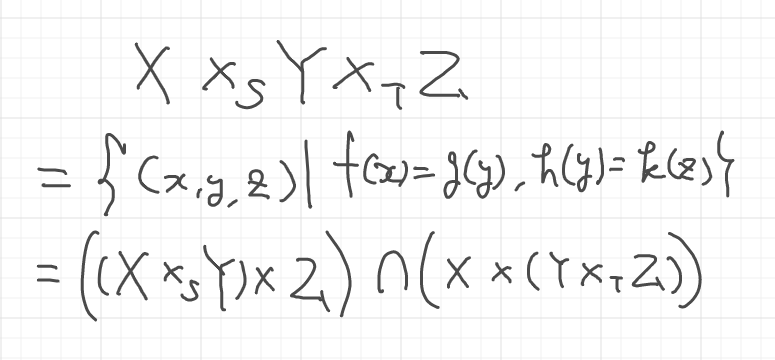 X ×_S Y ×_T Z
= {(x, y, z) | f(x) = g(y), h(y) = k(z)}
= ((X ×_S Y) × Z) ∩ (X × (Y ×_T Z))